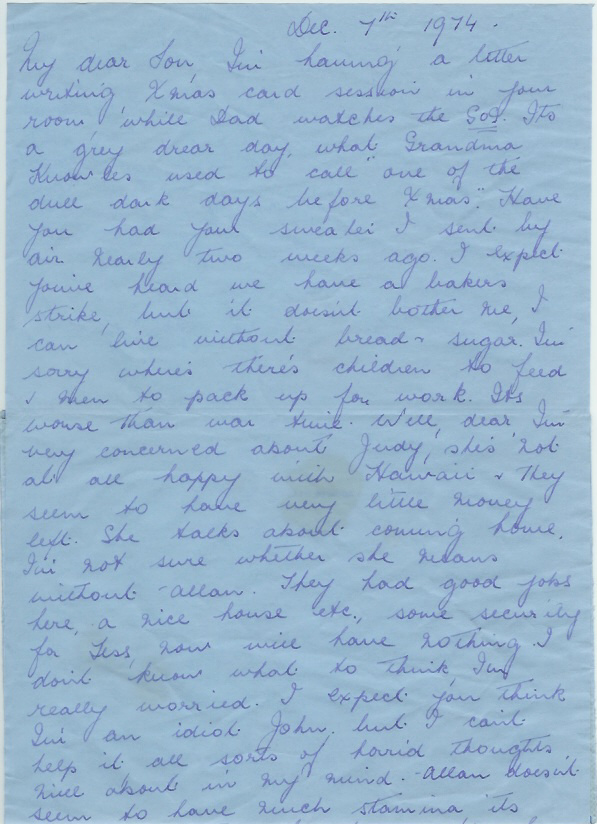 Dec. 7th 1974.
My dear Son I'm having a letter
writing Xmas card session in your
room while Dad watches the Its
a grey drear day, what Grandma
Knowles used to call "one of the
dull dark days before Xmas". Have
you had your sweater I sent by
air nearly two weeks ago. I expect
you've heard we have a bakers
strike, but it doesn't bother me, I
can live without bread & sugar. I'm
sorry where's there's children to feed
& men to pack up for work. Its
worse than war time. Well, dear I'm
very concerned about Judy, she's not
at all happy with Hawaii & They
seem to have very little money
left. She talks about coming home,
I'm not sure whether she means
without Allan. They had good jobs
here, a nice house etc., some security
for Tess, now will have nothing. I
don't know what to think, I'm
really worried. I expect you think
I'm an idiot John, but I can't
help it all sorts of horid thoughts
mill about in my mind. Allan doesn't
seem to have much stamina its